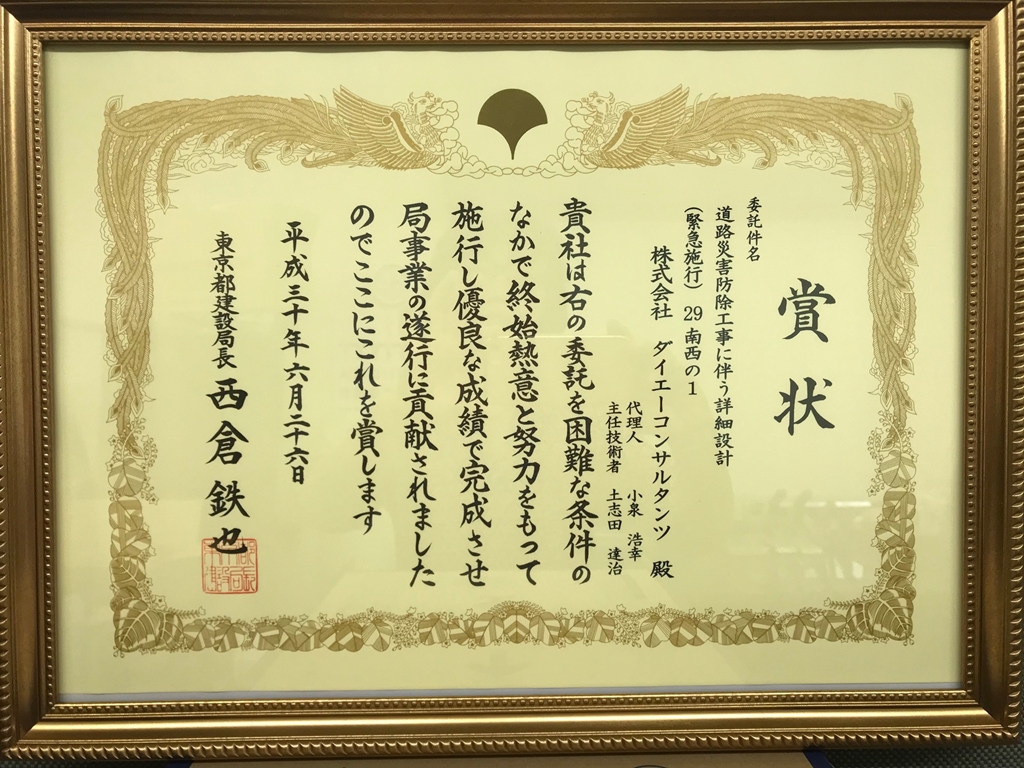 賞状
委託件名
道路災害防除工事に伴う詳細設計
（緊急施行）29南西の1
株式会社 ダイエーコンサルタンツ 殿
代理人 小泉 浩幸
主任技術者 土志田 達治
貴社は右の委託を困難な条件の
なかで終始熱意と努力をもって
施行し優良な成績で完成させ
局事業の遂行に貢献されました
のでここにこれを賞します
平成三十年六月二十六日
東京都建設局長 西倉 鉄也